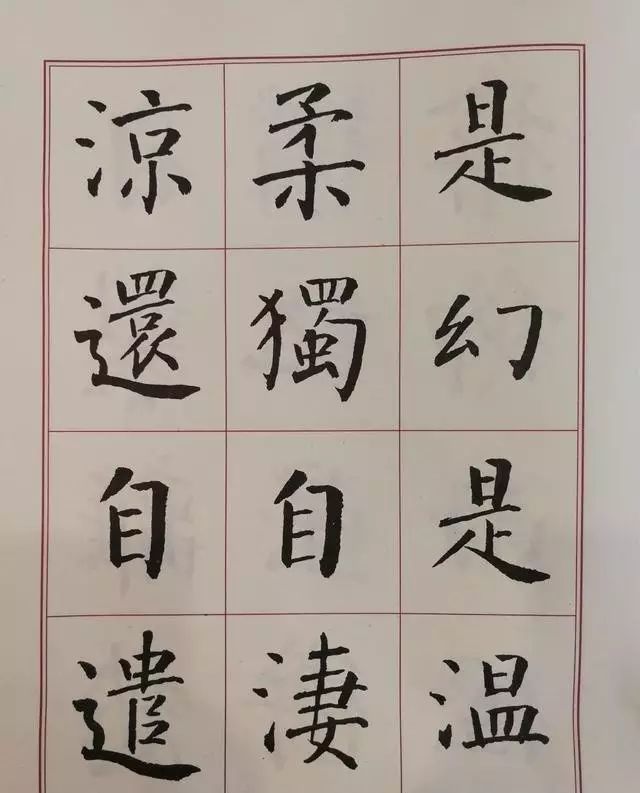 是幻是温
柔獨自淒
涼還自遣